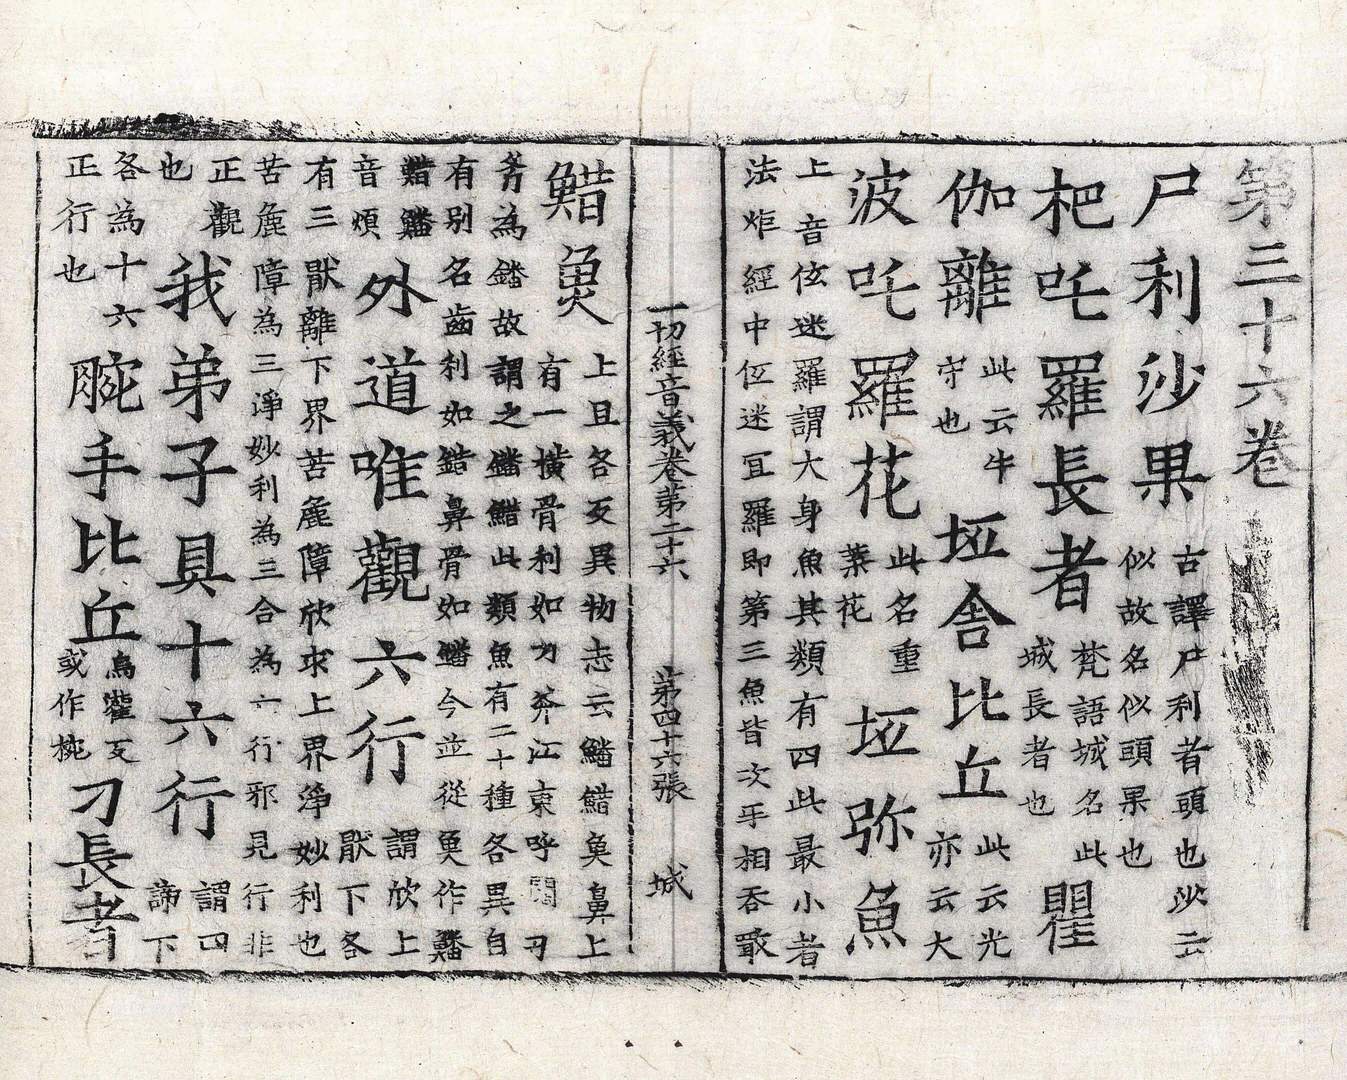 第三十六卷
尸利沙果 古譯尸利者頭也沙云
似故名似頭果也
杷吒羅長者 梵語城名此
城長者也 瞿
伽離 此云牛
守也 坘舍比丘 此云光
亦云大
波吒羅花 此名重
葉花 坘弥魚
上音低迷羅謂大身魚其類有四此最小者
法炬經中低迷冝羅即第三魚皆次乎相吞最
一切經音義卷第二十六 第四十六張 城
鯌魚 上且各反異物志云鱕鯌魚鼻上
有一橫骨利如刀斧江東呼闊刃
斧為鐇故謂之鱕鯌此類魚有二十種各異自
有別名齒利如錯鼻骨如鐇今並從魚作鱕
鯌鱕
音煩 外道唯觀六行 謂欣上
厭下各
有三厭離下界苦麁障欣求上界淨妙利也
苦麁障為三淨妙利為三合為六行邪見行非
正觀
也 我弟子具十六行 謂四
諦下
各為十六
正行也 腕手比丘 烏灌反
或作椀 刀長者